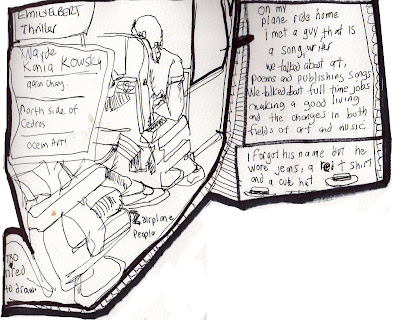 Emily Elbert
Thriller
Nayde
Kowsky
North side of
Cedros
Ocean Art!
airplane
People
TOO
tired
to draw
on my
plane ride home
I met a guy that is
a song writer
we talked about art,
poems and publishing songs
We talked about full time jobs
making a good living
and the changes in both
fields of art and music
I forgot his name but he
wore jeans, a Red t shirt
and a cute hat